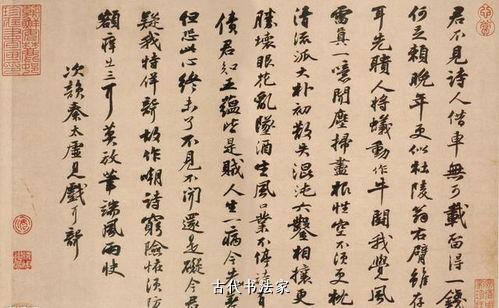 君不見詩人借車無可載留得一錢
何足賴晚年更似杜陵翁右臂雖存
耳先聵人將蟻動作牛鬭我覺風
雷真一噫聞塵掃盡根性空不須更枕
清流派大朴初散失混沌六鑿相攘更
勝壞眼花亂墜酒生風口業不停詩有
債君知五蘊皆是賊人生一病今先差
但恐此心終未了不見不聞還是礙今君
疑我特佯聾故作嘲詩窮險怪須防
額癢出三耳莫放筆端風雨快
次韻秦太虛見戲耳聾
古代书法家